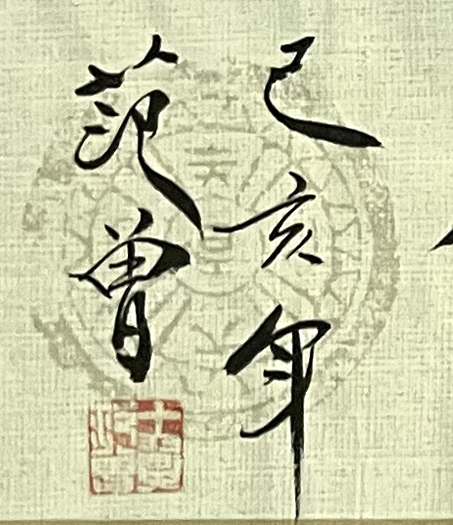 己亥年
范曾